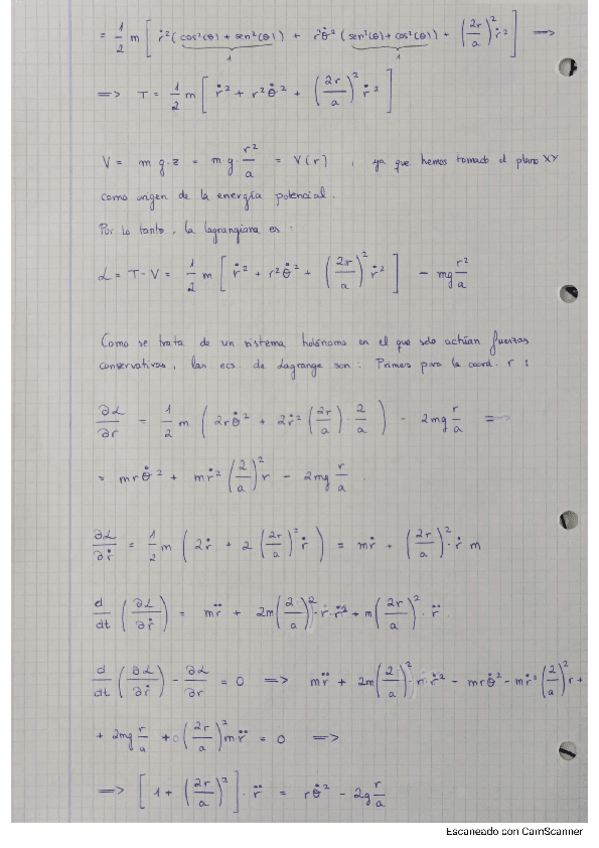 = 1/2 m [ ṙ²(cos²(θ) + sen²(θ)) + r²θ̇² (sen²(θ) + cos²(θ)) + (2r/a)² ṙ² ] =>
1 1
=> T = 1/2 m [ ṙ² + r²θ̇² + (2r/a)² ṙ² ]
V = m g·z = m g· r²/a = V(r) , ya que hemos tomado el plano XY
como origen de la energía potencial.
Por lo tanto, la lagrangiana es :
L = T - V = 1/2 m [ ṙ² + r²θ̇² + (2r/a)² ṙ² ] - mg r²/a
Como se trata de un sistema holónomo en el que solo actúan fuerzas
conservativas, las ecs. de Lagrange son : Primero para la coord. r :
∂L/∂r = 1/2 m ( 2rθ̇² + 2ṙ² (2r/a) · 2/a ) - 2mg r/a =>
= mrθ̇² + mṙ² (2/a)² r - 2mg r/a .
∂L/∂ṙ = 1/2 m ( 2ṙ + 2 (2r/a)² ṙ ) = mṙ + (2r/a)² · ṙ m
d/dt (∂L/∂ṙ) = mr̈ + 2m(2/a)² · r·ṙ² + m(2r/a)² · r̈
d/dt (∂L/∂ṙ) - ∂L/∂r = 0 => mr̈ + 2m(2/a)² · r·ṙ² - mrθ̇² - mṙ² (2/a)² r +
+ 2mg r/a + (2r/a)² mr̈ = 0 =>
=> [ 1 + (2r/a)² ] · r̈ = rθ̇² - 2g r/a
Escaneado con CamScanner